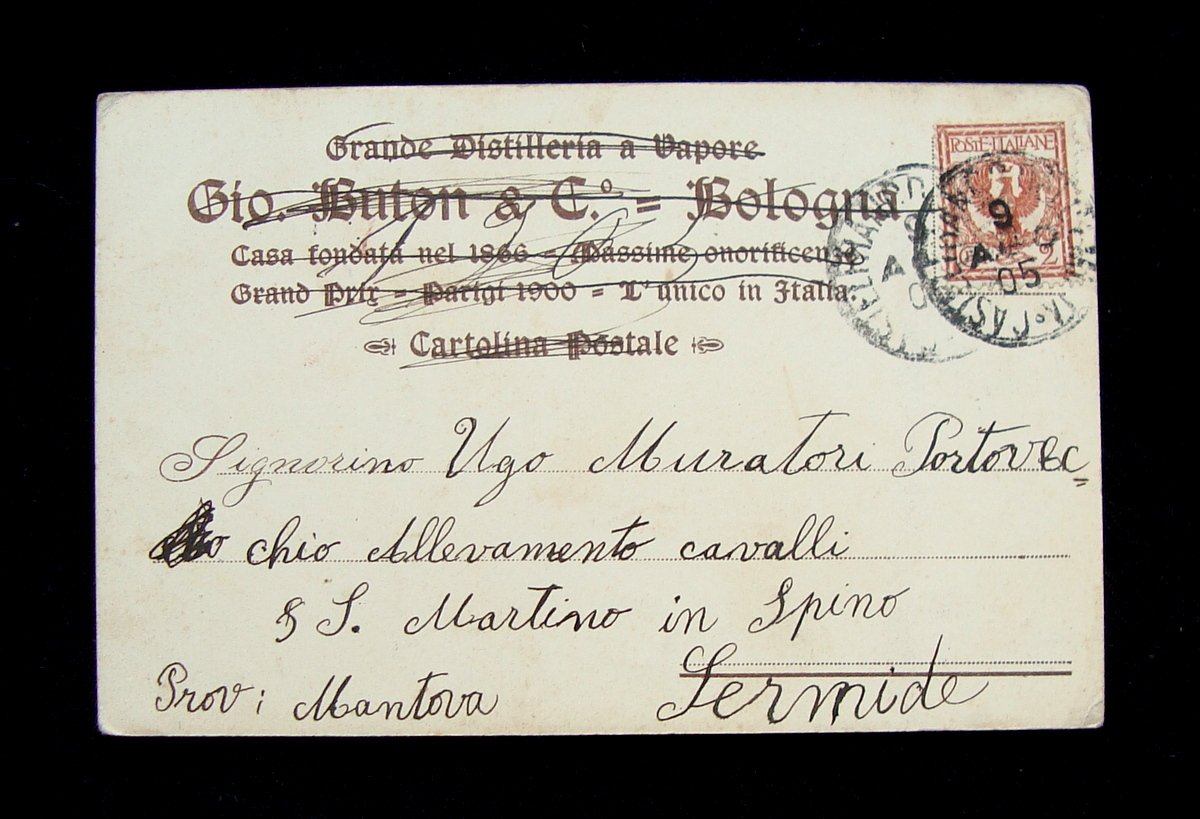 Grande Distilleria a Vapore
Gio. Buton & C.° = Bologna
Casa fondata nel 1866 - Massime onorificenze
Grand Prix - Parigi 1900 = L'unico in Italia
Cartolina Postale
POSTE·ITALIANE
9
05
2
Signorino Ugo Muratori Portovec=
chio Allevamento cavalli
S. Martino in Spino
Sermide
Prov: Mantova